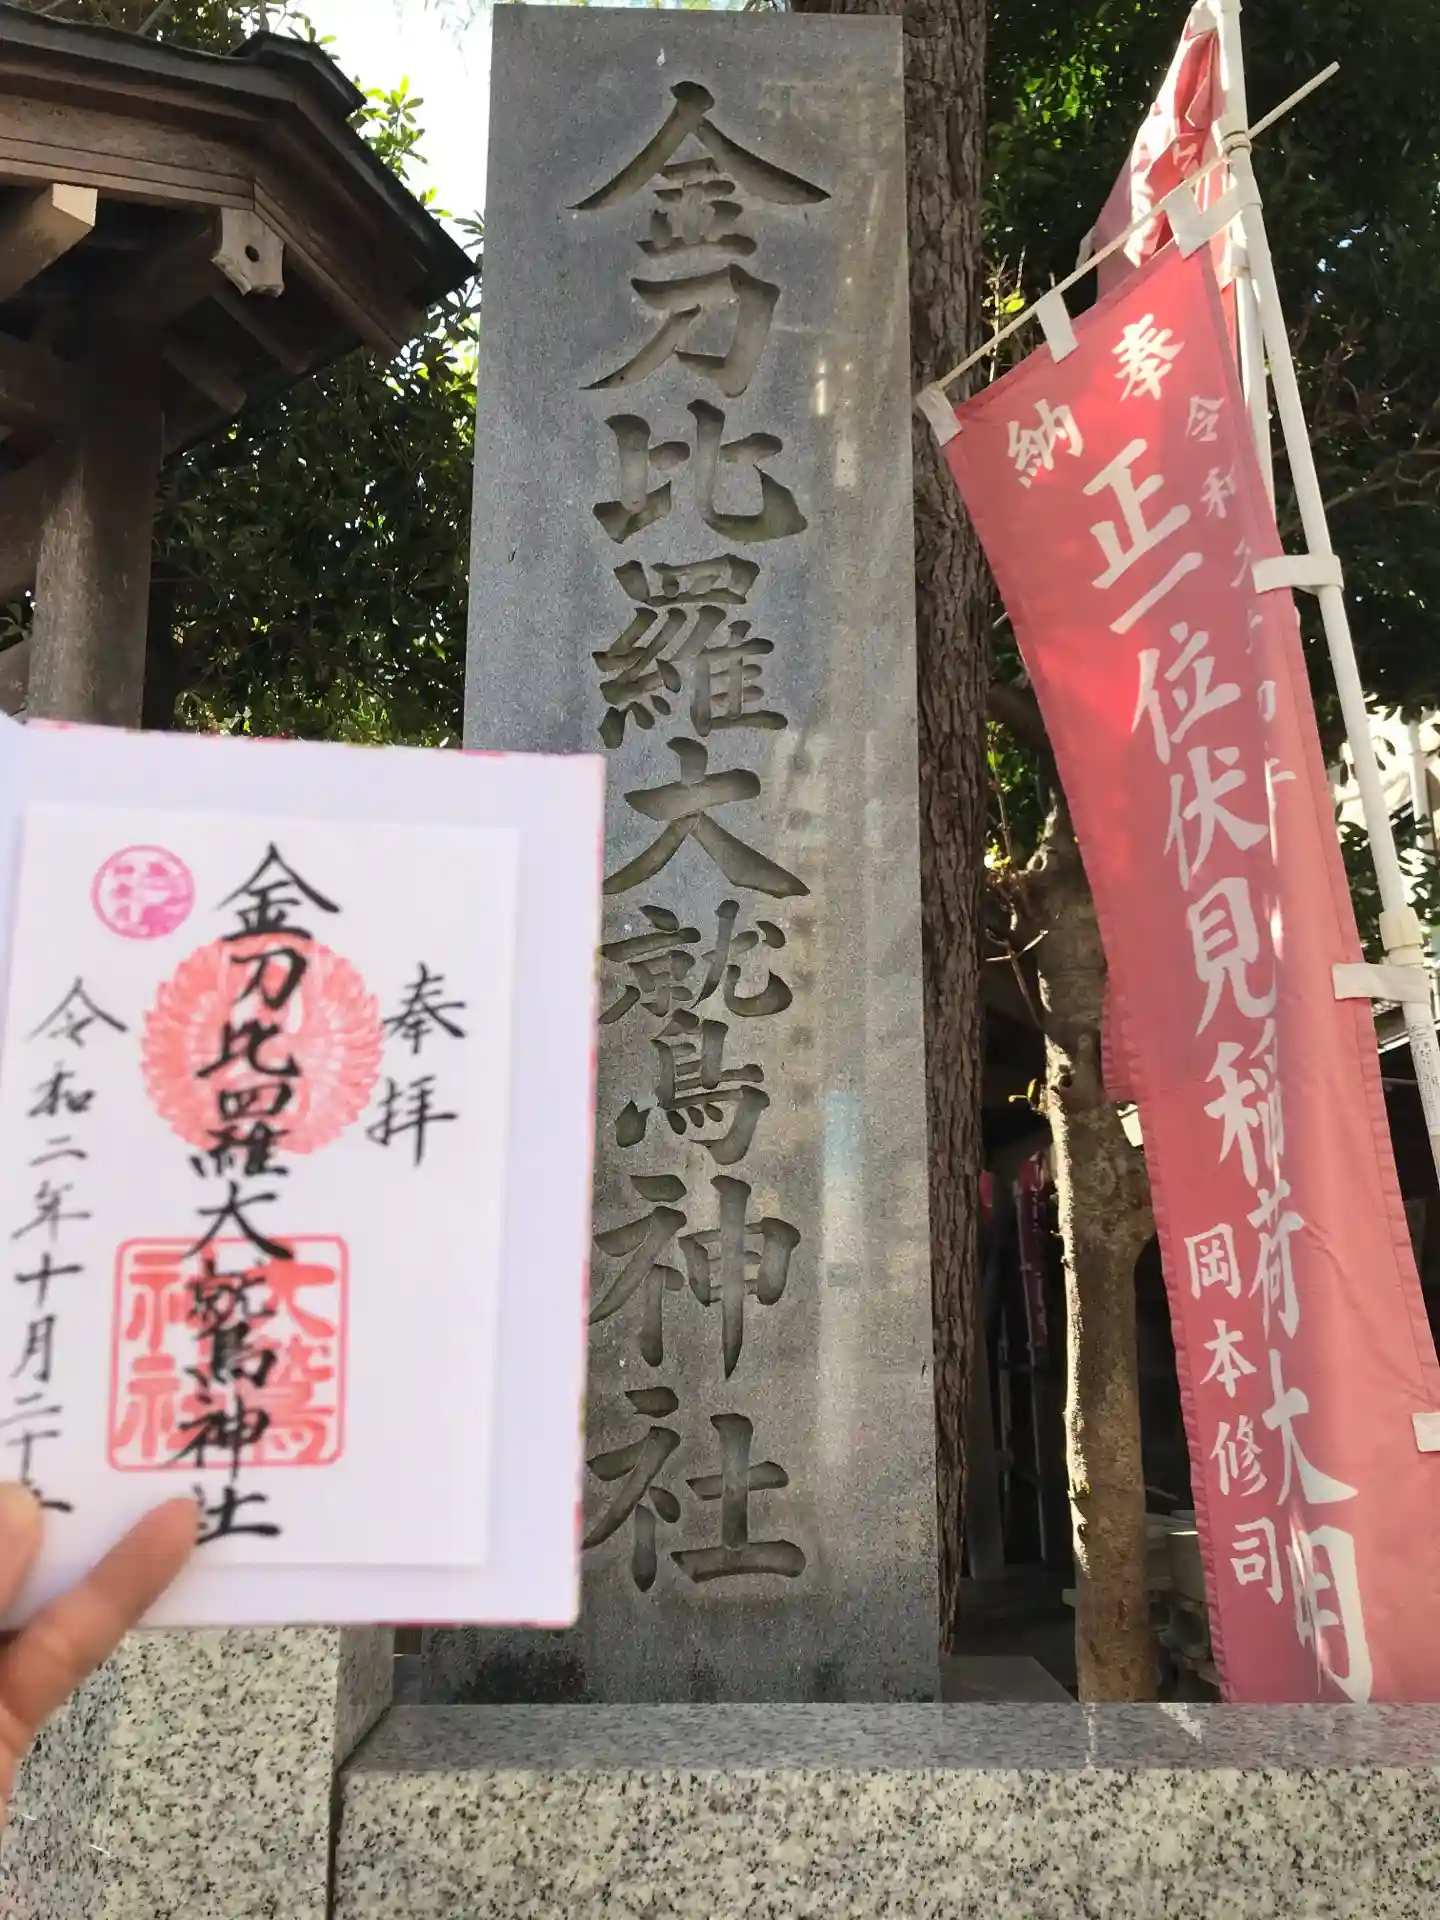 金刀比羅大鷲神社
奉拝
金刀比羅大鷲神社
令和二年十月二十
大鷲
神社
奉納
正一位伏見稲荷大明
令和
岡本修司